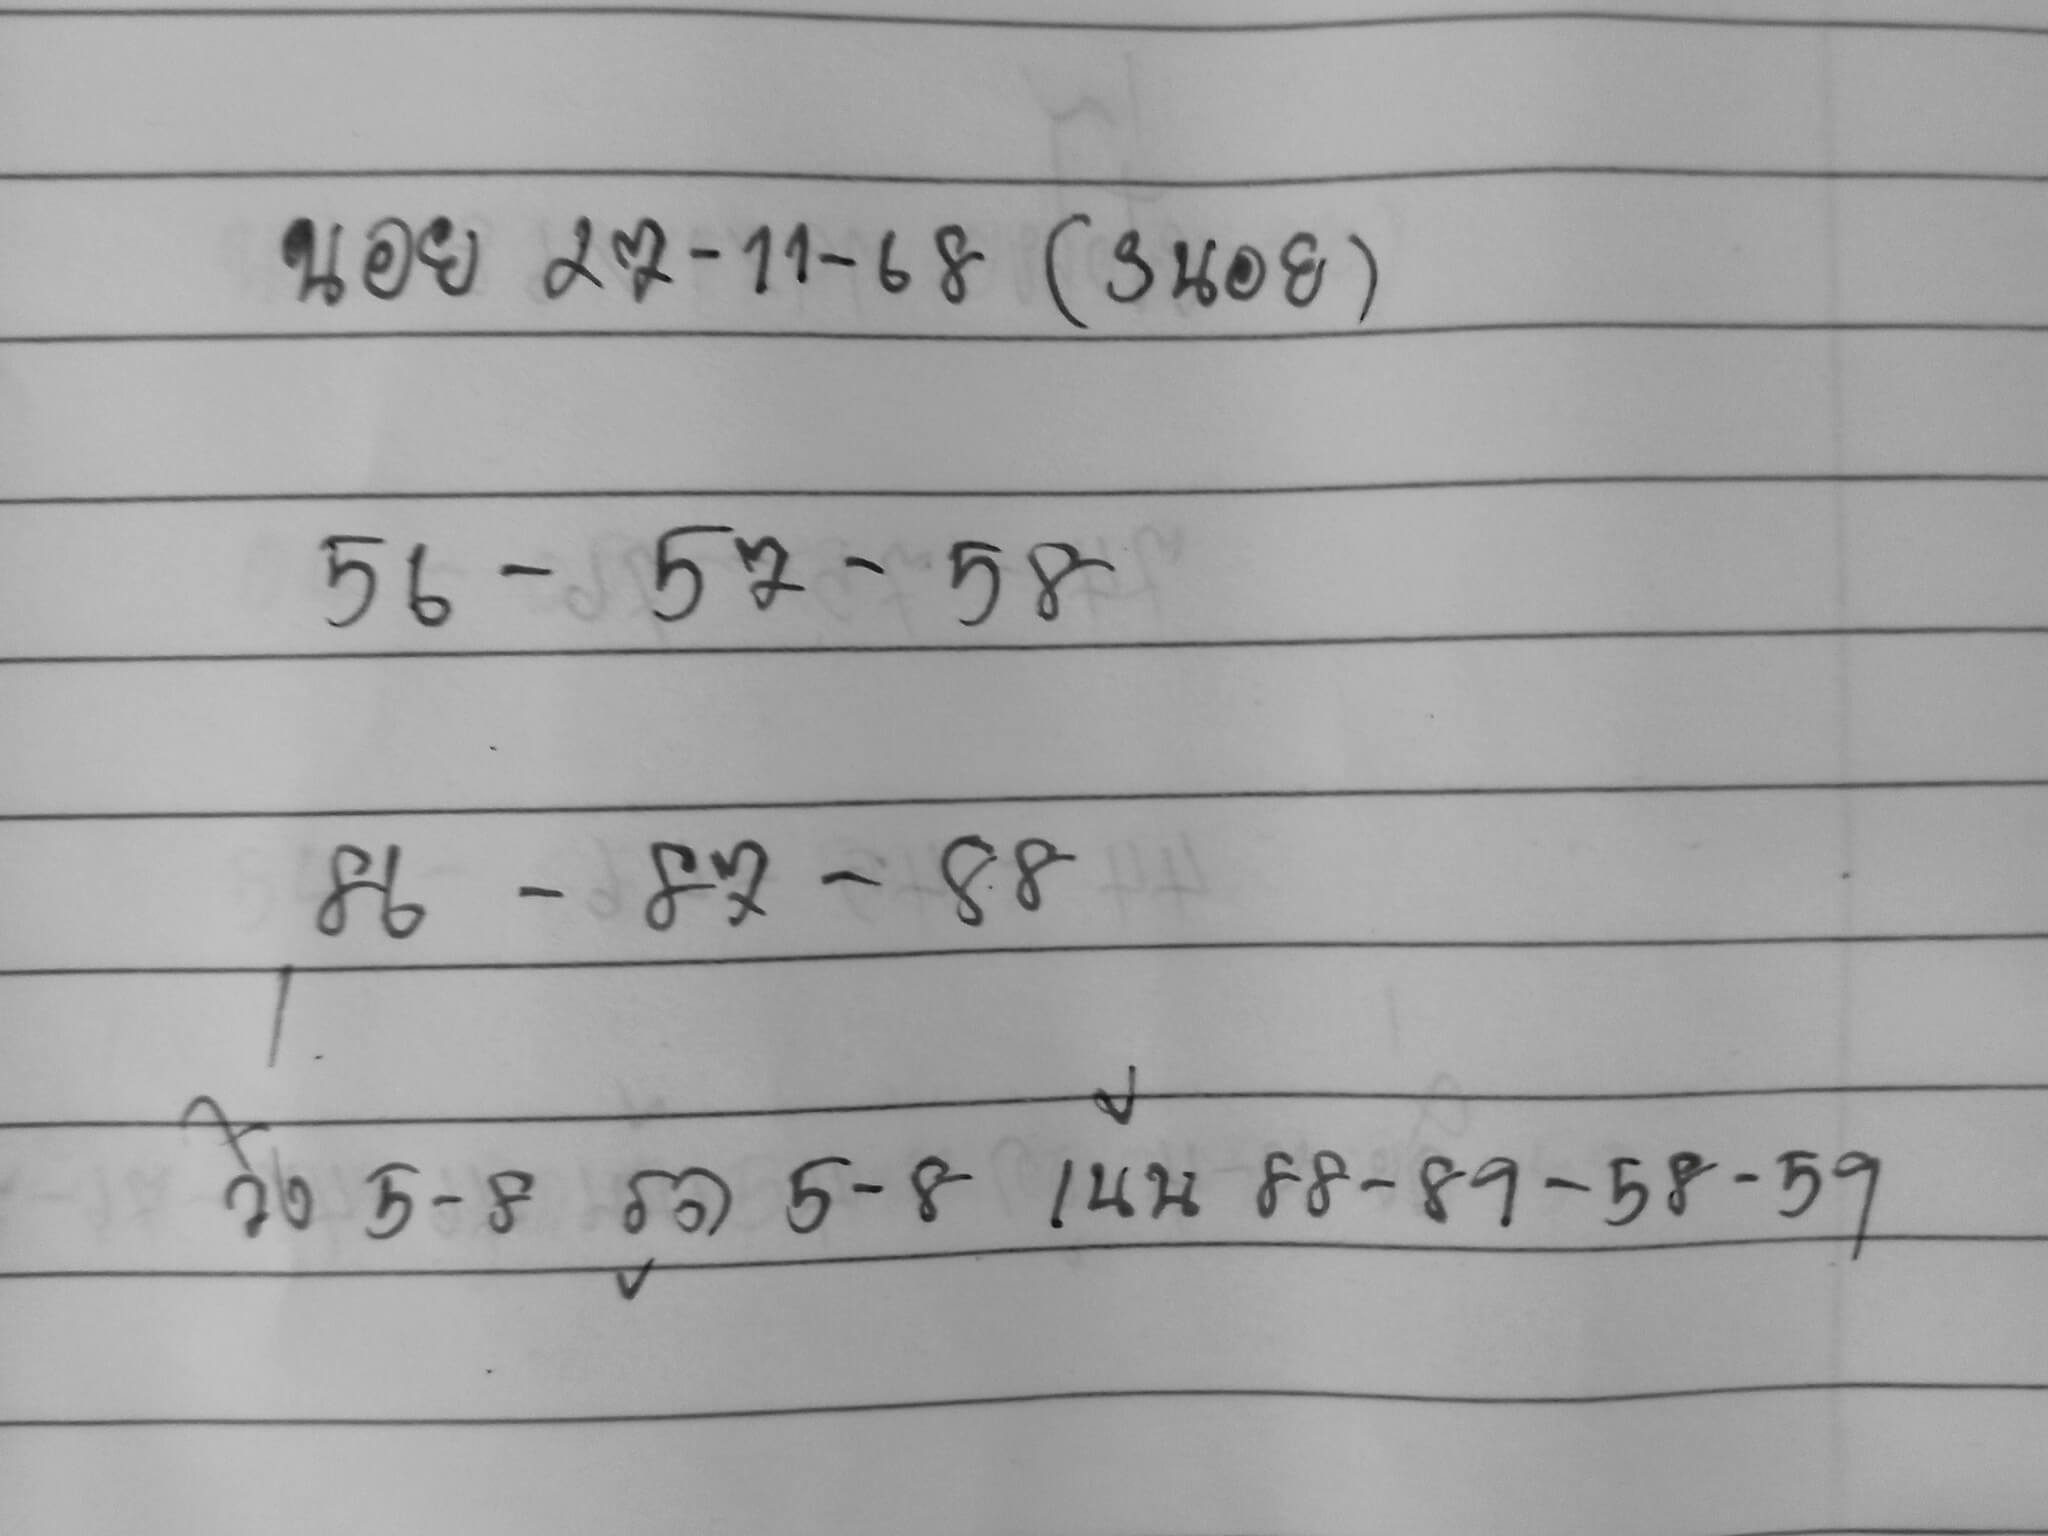 นอย 27-11-68 (ฮนอย)
56 - 57 - 58
86 - 87 - 88
วิ่ง 5-8 รูด 5-8 เน้น 88-89-58-59